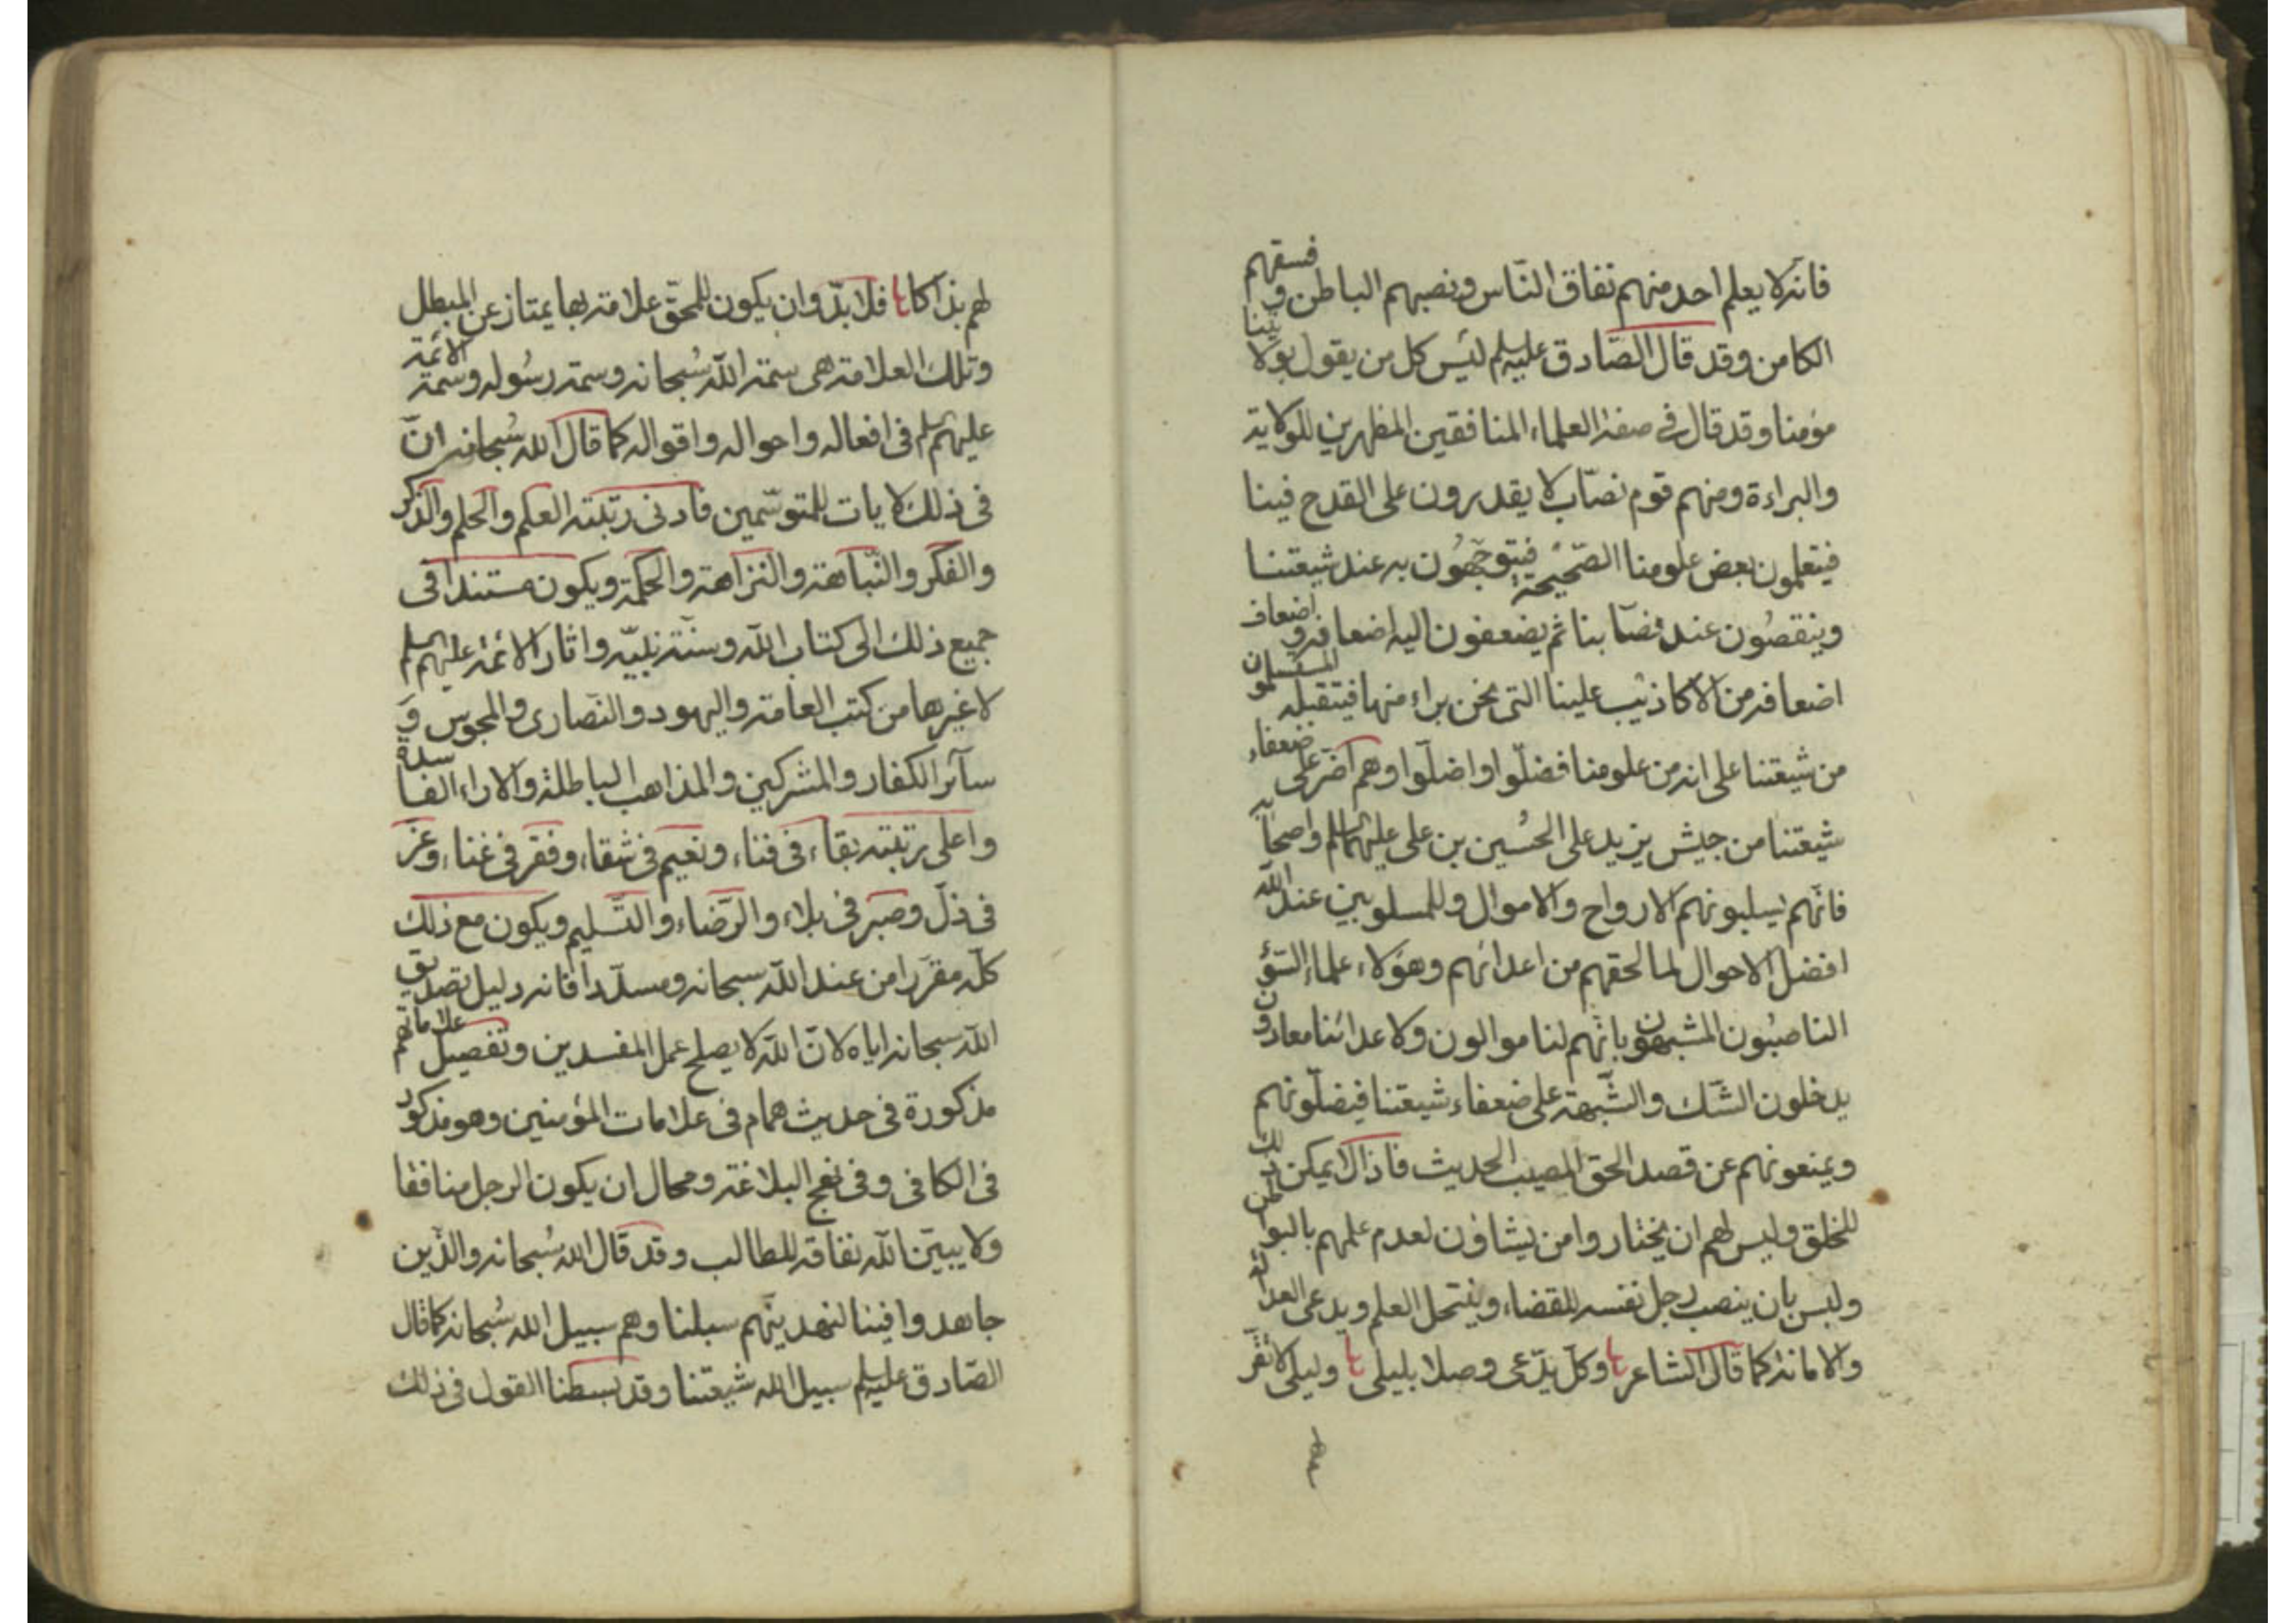 فانه لا يعلم احد منهم نفاق الناس ونصبهم الباطن وفسقهم
الكامن وقد قال الصّادق عليه‌السلم ليس كل من يقول بولايتنا
مؤمنا وقد قال فى صفة العلماء المنافقين المظهرين للولاية
والبراءة ومنهم قوم نصّاب لا يقدرون على القدح فينا
فيتعلمون بعض علومنا الصّحيحة فيتوجّهون به عند شيعتنا
وينقصون عند نصّابنا ثم يضعفون اليه اضعافه و اضعاف
اضعافه من الاكاذيب علينا التى نحن براء منها فيتقبله المستسلمون
من شيعتنا على انه من علومنا فضلّوا واضلّوا وهم اضرّ على ضعفاء
شيعتنا من جيش يزيد على الحسين بن على عليهما السلم واصحابه
فانّهم يسلبونهم الارواح والاموال وللمسلوبين عند الله
افضل الاحوال لما لحقهم من اعدائهم وهؤلاء علماء السّوء
الناصبون المشبهون بانّهم لنا موالون ولاعدائنا معادون و
يدخلون الشك والشّبهة على ضعفاء شيعتنا فيضلّونهم
ويمنعونهم عن قصد الحق المصيب الحديث فاذا لا يمكن ذلك
للخلق وليس لهم ان يختاروا من يشاؤن لعدم علمهم بالبواطن
وليس بان ينصب رجل نفسه للقضاء وينتحل العلم ويدعى العدالة
والامانة كما قال الشاعر وكل يدّعى وصلا بليلى وليلى لا تقر
لهم بذاكا فلا بدّ وان يكون للمحقّ علامة بها يمتاز عن المبطل
وتلك العلامة هى سمة الله سُبحانه وسمة رسُوله وسمة الائمة
عليهم السلم فى افعاله واحواله واقواله كما قال الله سُبحانه انّ
فى ذلك لايات للمتوسّمين فادنى رتبته العلم والحلم والذكر
والفكر والنّباهة والنزاهة والحكمة ويكون مستندا فى
جميع ذلك الى كتاب الله وسنّة نبيّه واثار الائمة عليهم السلم
لا غيرها من كتب العامة واليهود والنّصارى والمجوس وَ
سآئر الكفار والمشركين والمذاهب الباطلة والاراء الفاسدة
واعلى رتبته بقاء فى فناء ونعيم فى شقاء وفقر فى غناء وعزّ
فى ذلّ وصبر فى بلاء والرّضاء والتّسليم ويكون مع ذلك
كلّه مقرّرا من عند الله سبحانه ومسدّدا فانه دليل تصديق
الله سبحانه اياه لانّ الله لا يصلح عمل المفسدين وتفصيل علاماتهم
مذكورة فى حديث همام فى علامات المؤمنين وهو مذكور
فى الكافى وفى نهج البلاغة ومحال ان يكون الرجل منافقا
ولا يبيّن الله نفاقه للطالب وقد قال الله سُبحانه والذّين
جاهدوا فينا لنهدينّهم سبلنا وهم سبيل الله سُبحانه كما قال
الصّادق عليه‌السلم سبيل الله شيعتنا وقد بسطنا القول فى ذلك